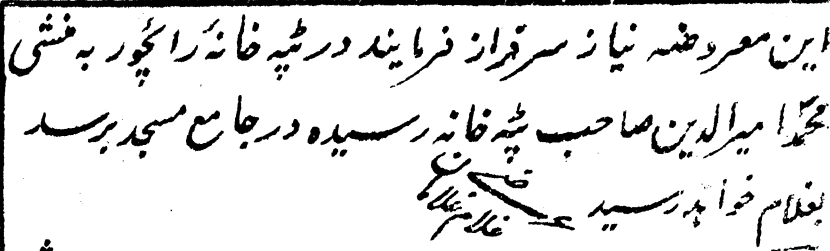 این معروضہ نیاز سرفراز فرمایند در ٹپہ خانۂ رائچور بہ منشی
محمد امیرالدین صاحب ٹپہ خانہ رسیدہ در جامع مسجد برسد
بغلام خواہد رسید
غلام غلامان